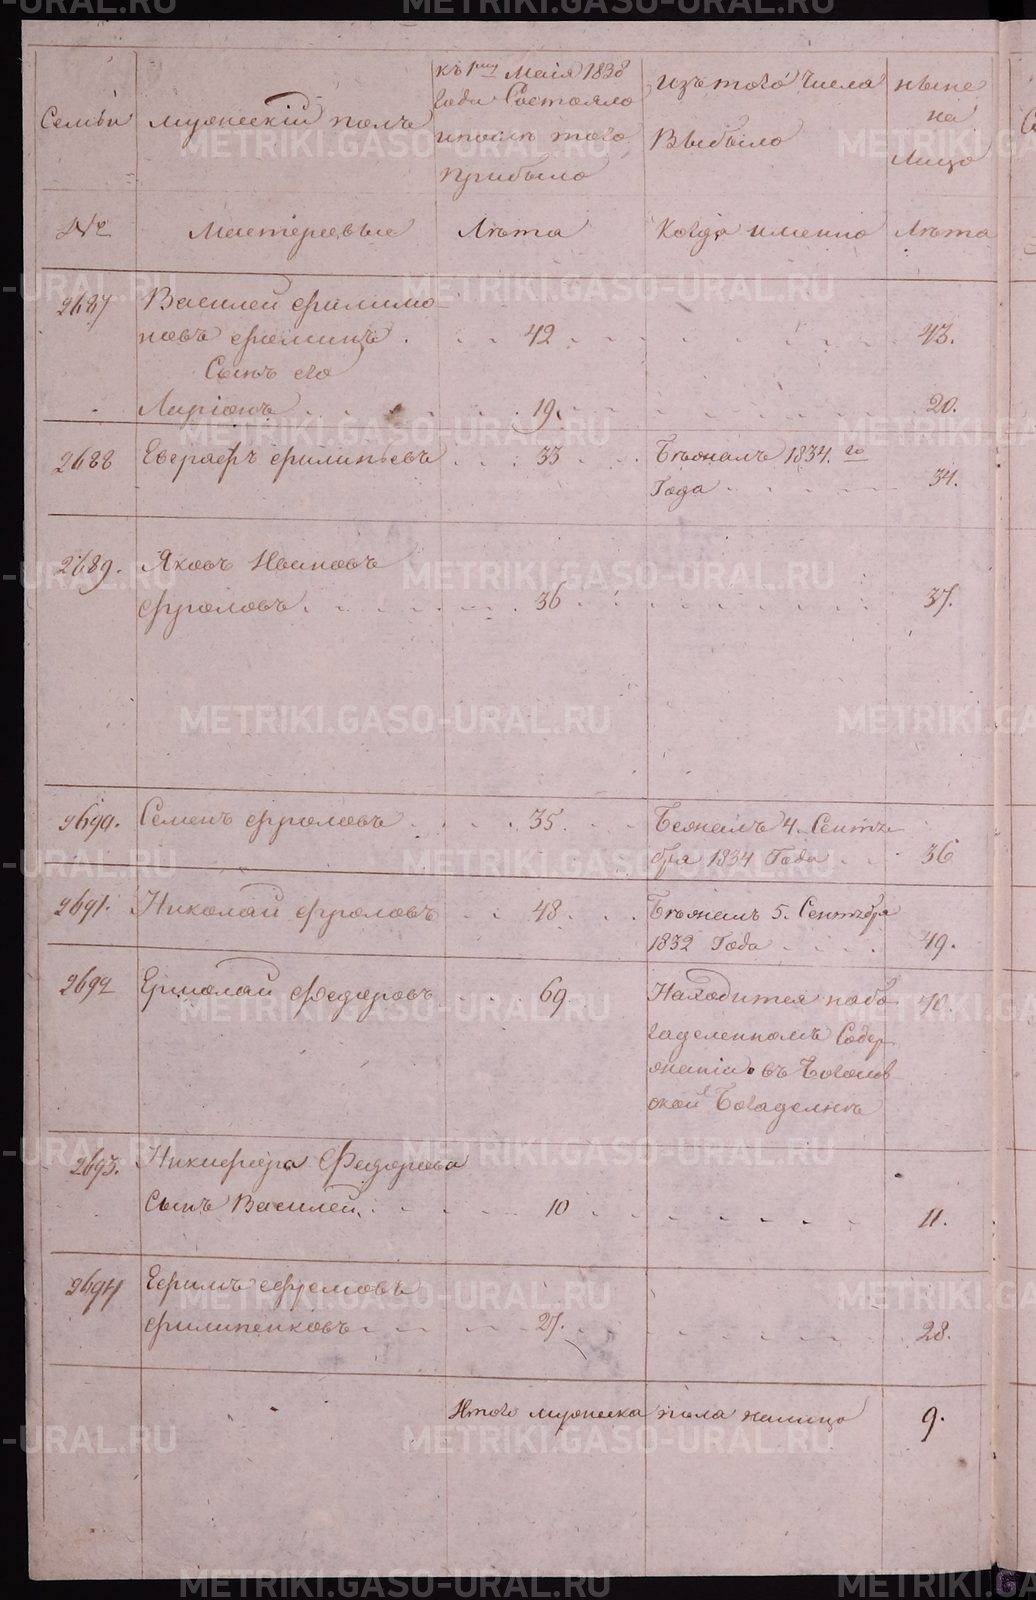 Семьи
мужескій полъ
къ 1му Маія 1838
года Состояло
и послѣ того
прибыло
изъ того числа
выбыло
ныне
на
лицо
№
Мастеровые
Лѣта
Когда именно
Лѣта
2687 Василей Филимо
новъ Фоминъ . 42 43.
Сынъ его
Ларіонъ 19. 20.
2688 Евграфъ Филипьевъ 33 Бѣжалъ 1834. го
Года 34.
2689. Яковъ Ивановъ
Фроловъ 36 37.
2690. Семенъ Фроловъ 35 Бежалъ 4. Сентя
бря 1834 Года 36
2691. Николай Фроловъ 48 Бѣжалъ 5. Сентября
1832 Года 49.
2692 Ермолай Федоровъ 69 Находится на бо 70.
гаделенномъ Содер
жаніи въ
ской Богаделнѣ
2693. Никифора Федорова
Сынъ Василей 10 11.
2694 Ефимъ Ефремовъ
Филипенковъ 27. 28.
Итого мужеска пола налицо 9.
METRIKI.GASO-URAL.RU